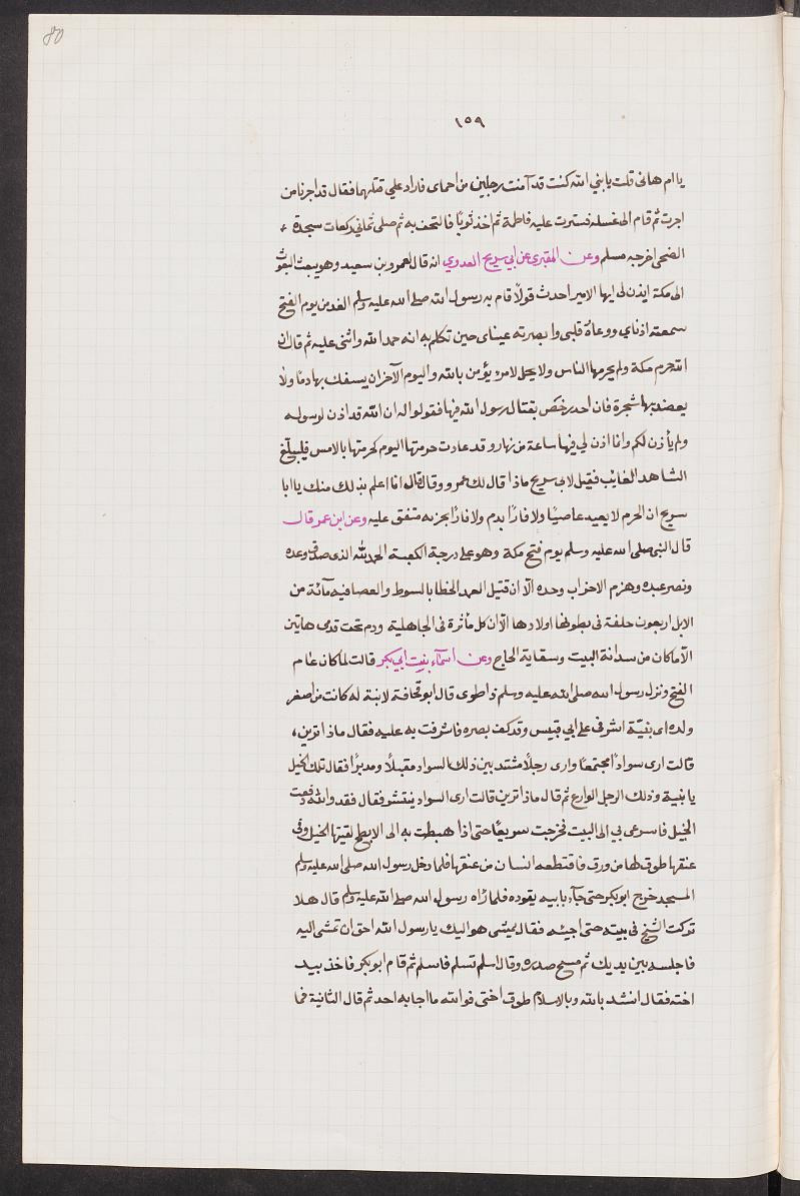 80
١٥٩
يا ام هانى قلت يا نبي الله كنت قد آمنت رجلين من احماى فاراد علي قتلهما فقال قد اجرنا من
اجرت ثم قام الى غسله فسترت عليه فاطمة ثم اخذ ثوبًا فالتحف به ثم صلى ثماني ركعات سبحة
الضحى اخرجه مسلم وعن المقبري عن ابي سريح العدوي انه قال لعمرو بن سعيد وهو يبعث البعوث
الى مكة ايذن لى ايها الامير احدث قولًا قام به رسول الله صلى الله عليه وسلم الغد من يوم الفتح
سمعته اذناي ووعاه قلبى وابصرته عيناى حين تكلم به انه حمد الله واثنى عليه ثم قال ان
الله حرم مكة ولم يحرمها الناس ولا يحل لامرء يؤمن بالله واليوم الآخر ان يسفك بها دمًا ولا
يعضد بها شجرة فان احد رخص بقتال رسول الله فيها فقولوا له ان الله قد اذن لرسوله
ولم يأذن لكم وانما اذن لي فيها ساعة من نهار وقد عادت حرمتها اليوم كحرمتها بالامس فليبلغ
الشاهد الغايب فقيل لابى سريح ماذا قال لك عمرو وقال قال انا اعلم بذلك منك يا ابا
سريح ان الحرم لا يعيد عاصيًا ولا فارًا بدم ولا فارًا بجزية متفق عليه وعن ابن عمر قال
قال النبى صلى الله عليه وسلم يوم فتح مكة وهو على درجة الكعبة الحمد لله الذى صدق وعده
ونصر عبده وهزم الاحزاب وحده الّا ان قتيل العمد الخطا بالسوط والعصا فيه مآئة من
الابل اربعون خلفة فى بطونها اولادها الّا ان كل مأثرة فى الجاهلية ودم تحت قدمى هاتين
الّا ماكان من سدانة البيت وسقاية الحاج وعن اسمآء بنت ابي بكر قالت لما كان عام
الفتح ونزل رسول الله صلى الله عليه وسلم ذا طوى قال ابو قحافة لابنة له كانت من اصغر
ولده اى بنيّة اشرفى على ابي قبيس وقد كف بصره فاشرفت به عليه فقال ماذا ترين
قالت ارى سوادًا مجتمعًا وارى رجلًا مشتد بين ذلك السواد مقبلًا ومدبرًا فقال تلك الخيل
يا بنية وذلك الرجل الوازع ثم قال ماذا ترين قالت ارى السواد ينتشر فقال فقد والله دفعت
الخيل فاسرعى بي الى البيت فخرجت سريعًا حتى اذا هبطت به الى الابطح لقيتها الخيل وفى
عنقها طوق لها من ورق فاقتطعه انسان من عنقها فلما دخل رسول الله صلى الله عليه وسلم
المسجد خرج ابو بكر حتى جآء بابيه يقوده فلما رآه رسول الله صلى الله عليه وسلم قال هلا
تركت الشيخ فى بيته حتى اجيئه فقال يمشى هو اليك يا رسول الله احق ان تمشى اليه
فاجلسه بين يديك ثم مسح صدره وقال اسلم تسلم فاسلم ثم قام ابو بكر فاخذ بيد
اخته فقال انشد بالله وبالاسلام طوق اختى فوالله ما اجابه احد ثم قال الثانية فما